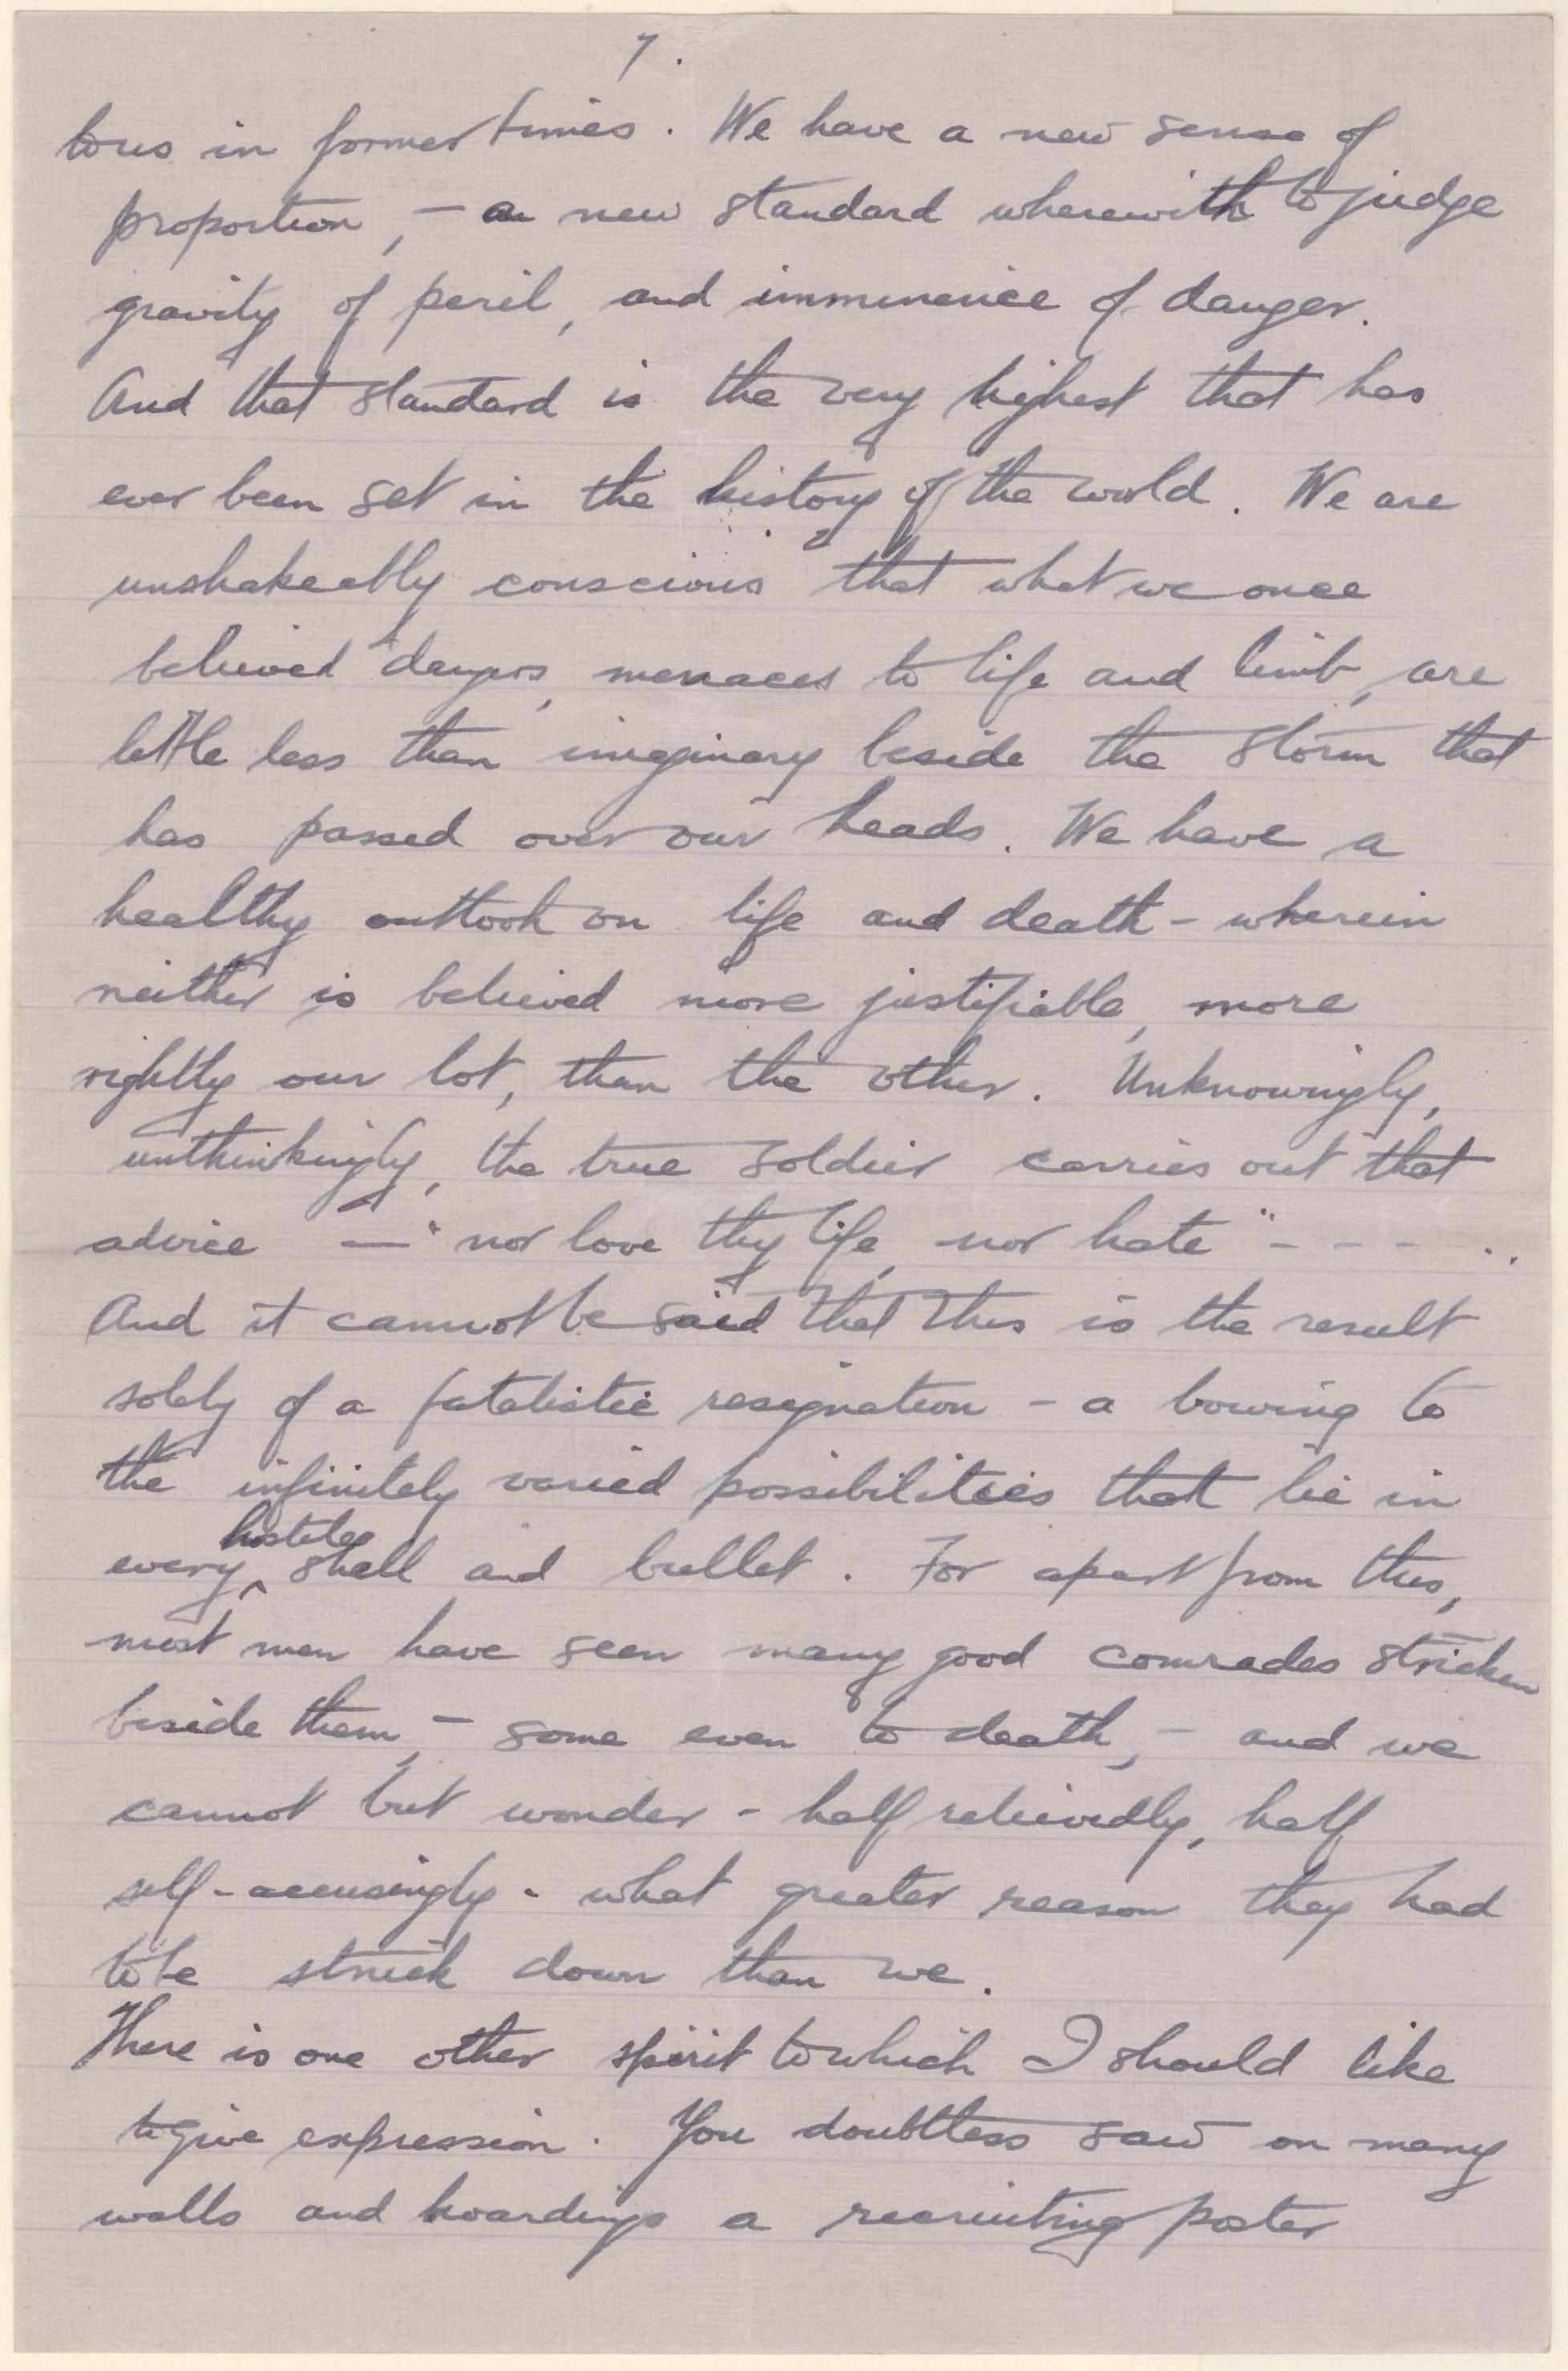 7.
to us in former times. We have a new sense of
proportion, – a new standard wherewith to judge
gravity of peril, and imminence of danger.
And that standard is the very highest that has
ever been set in the history of the world. We are
unshakeably conscious that what we once
believed dangers, menaces to life and limb, are
little less than imaginary beside the storm that
has passed over our heads. We have a
healthy outlook on life and death – wherein
neither is believed more justifiable, more
rightly our lot, than the other. Unknowingly,
unthinkingly, the true soldier carries out that
advice — "nor love thy life, nor hate" - - - ..
And it cannot be said that this is the result
solely of a fatalistic resignation – a bowing to
the infinitely varied possibilities that lie in
every hostile shell and bullet. For apart from this,
most men have seen many good comrades stricken
beside them, – some even to death, – and we
cannot but wonder – half relievedly, half
self-accusingly – what greater reason they had
to be struck down than we.
There is one other spirit to which I should like
to give expression. You doubtless saw on many
walls and hoardings a recruiting poster